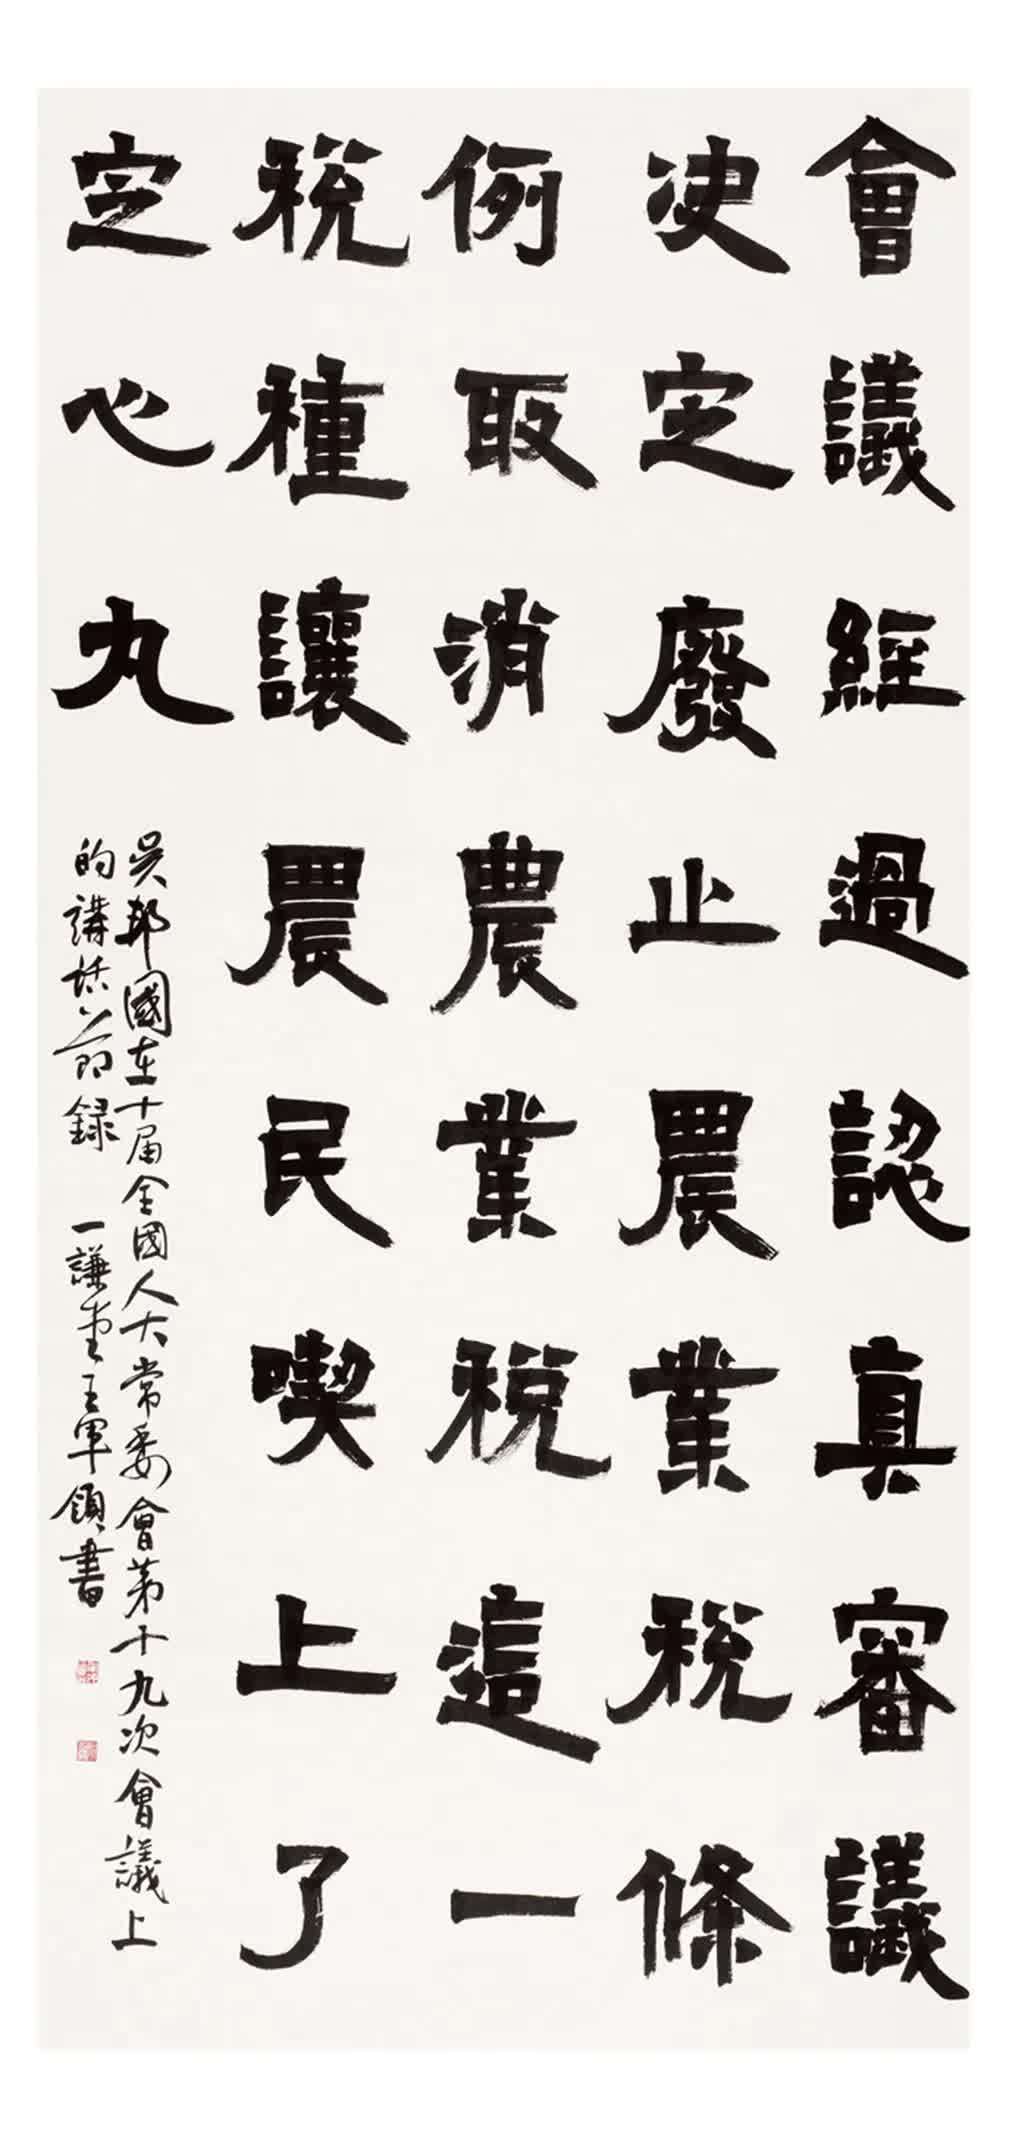 會議經過認真審議
决定廢止農業税條
例取消農業税這一
税種讓農民喫上了
定心丸
吴邦國在十届全國人大常委會第十九次會議上
的講話節録 一謙堂王軍領書